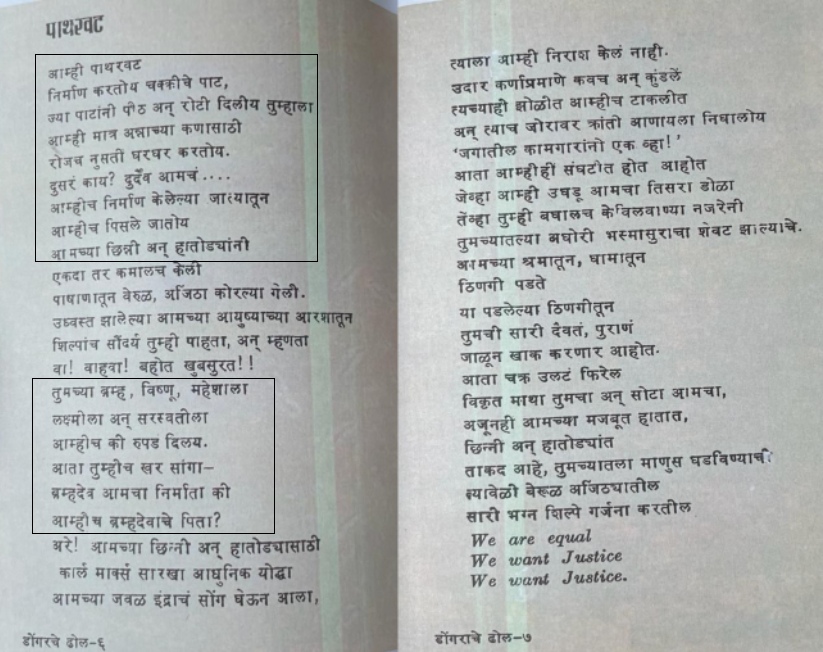 पाथरवट
आम्ही पाथरवट
निर्माण करतोय चक्कीचे पाट,
ज्या पाटांनी पीठ अन् रोटी दिलीय तुम्हाला
आम्ही मात्र अन्नाच्या कणासाठी
रोजच नुसती घरघर करतोय.
दुसरं काय? दुर्दैव आमचं ....
आम्हीच निर्माण केलेल्या जात्यातून
आम्हीच पिसले जातोय
आमच्या छिन्नी अन् हातोड्यांनी
एकदा तर कमालच केली
पाषाणातून वेरुळ, अजिंठा कोरल्या गेली.
उध्वस्त झालेल्या आमच्या आयुष्याच्या आरशातून
शिल्पांच सौंदर्य तुम्ही पाहता, अन् म्हणता
वा! वाहवा! बहोत खुबसुरत!!
तुमच्या ब्रम्ह, विष्णू, महेशाला
लक्ष्मीला अन् सरस्वतीला
आम्हीच की रुपड दिलय.
आता तुम्हीच खर सांगा–
ब्रम्हदेव आमचा निर्माता की
आम्हीच ब्रम्हदेवाचे पिता?
अरे! आमच्या छिन्नी अन् हातोड्यासाठी
कार्ल मार्क्स सारखा आधुनिक योद्धा
आमच्या जवळ इंद्राचं सोंग घेऊन आला,
डोंगरचे ढोल–६
त्याला आम्ही निराश केलं नाही.
उदार कर्णाप्रमाणे कवच अन् कुंडलें
त्यच्याही झोळीत आम्हीच टाकलीत
अन् त्याच जोरावर क्रांती आणायला निघालोय
'जगातील कामगारांनो एक व्हा!'
आता आम्हीही संघटीत होत आहोत
जेव्हा आम्ही उघडू आमचा तिसरा डोळा
तेंव्हा तुम्ही बघालच केविलवाण्या नजरेनी
तुमच्यातल्या अघोरी भस्मासुराचा शेवट झाल्याचे.
आमच्या श्रमातून, घामातून
ठिणगी पडते
या पडलेल्या ठिणगीतून
तुमची सारी दैवतं, पुराणं
जाळून खाक करणार आहोत.
आता चक्र उलटं फिरेल
विकृत माथा तुमचा अन् सोटा आमचा,
अजूनही आमच्या मजबूत हातात,
छिन्नी अन् हातोड्यांत
ताकद आहे, तुमच्यातला माणुस घडविण्याची
त्यावेळी वेरूळ अजिंठ्यातील
सारी भग्न शिल्पे गर्जना करतील
We are equal
We want Justice
We want Justice.
डोंगराचे ढोल–७